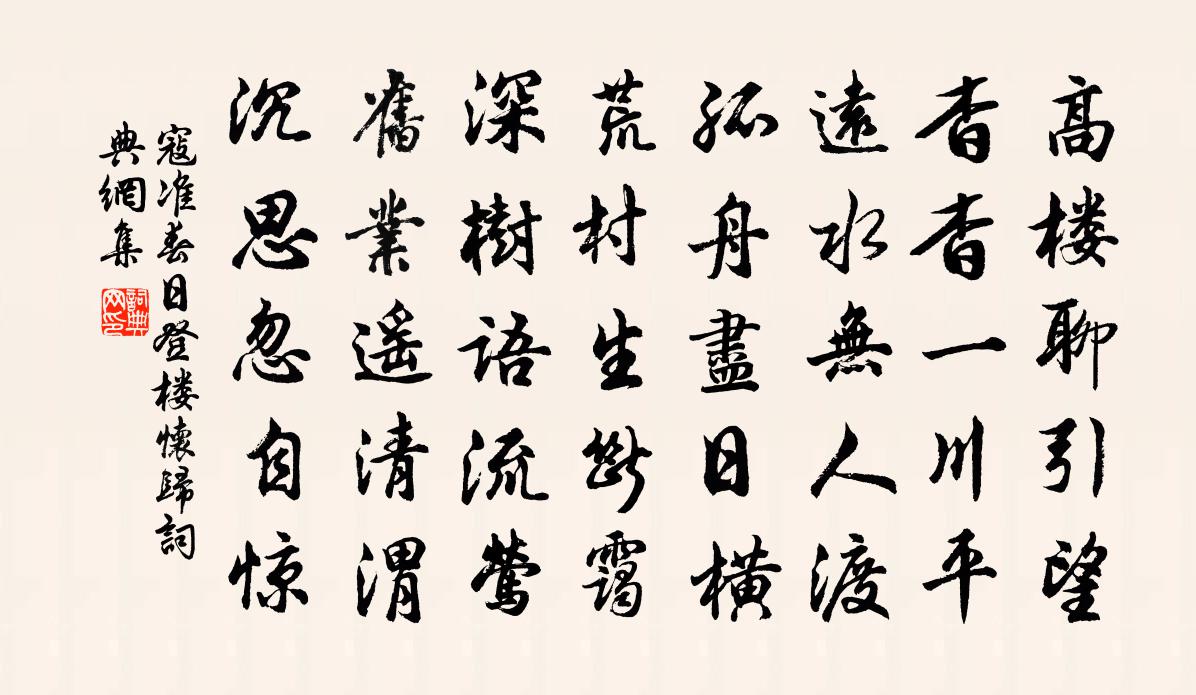 高楼聊引望
杳杳一川平
遠水無人渡
孤舟盡日橫
荒村生斷靄
深樹語流鶯
舊業遥清渭
沉思忽自惊
寇准春日登楼懷歸詞
典網集
詞典
网印